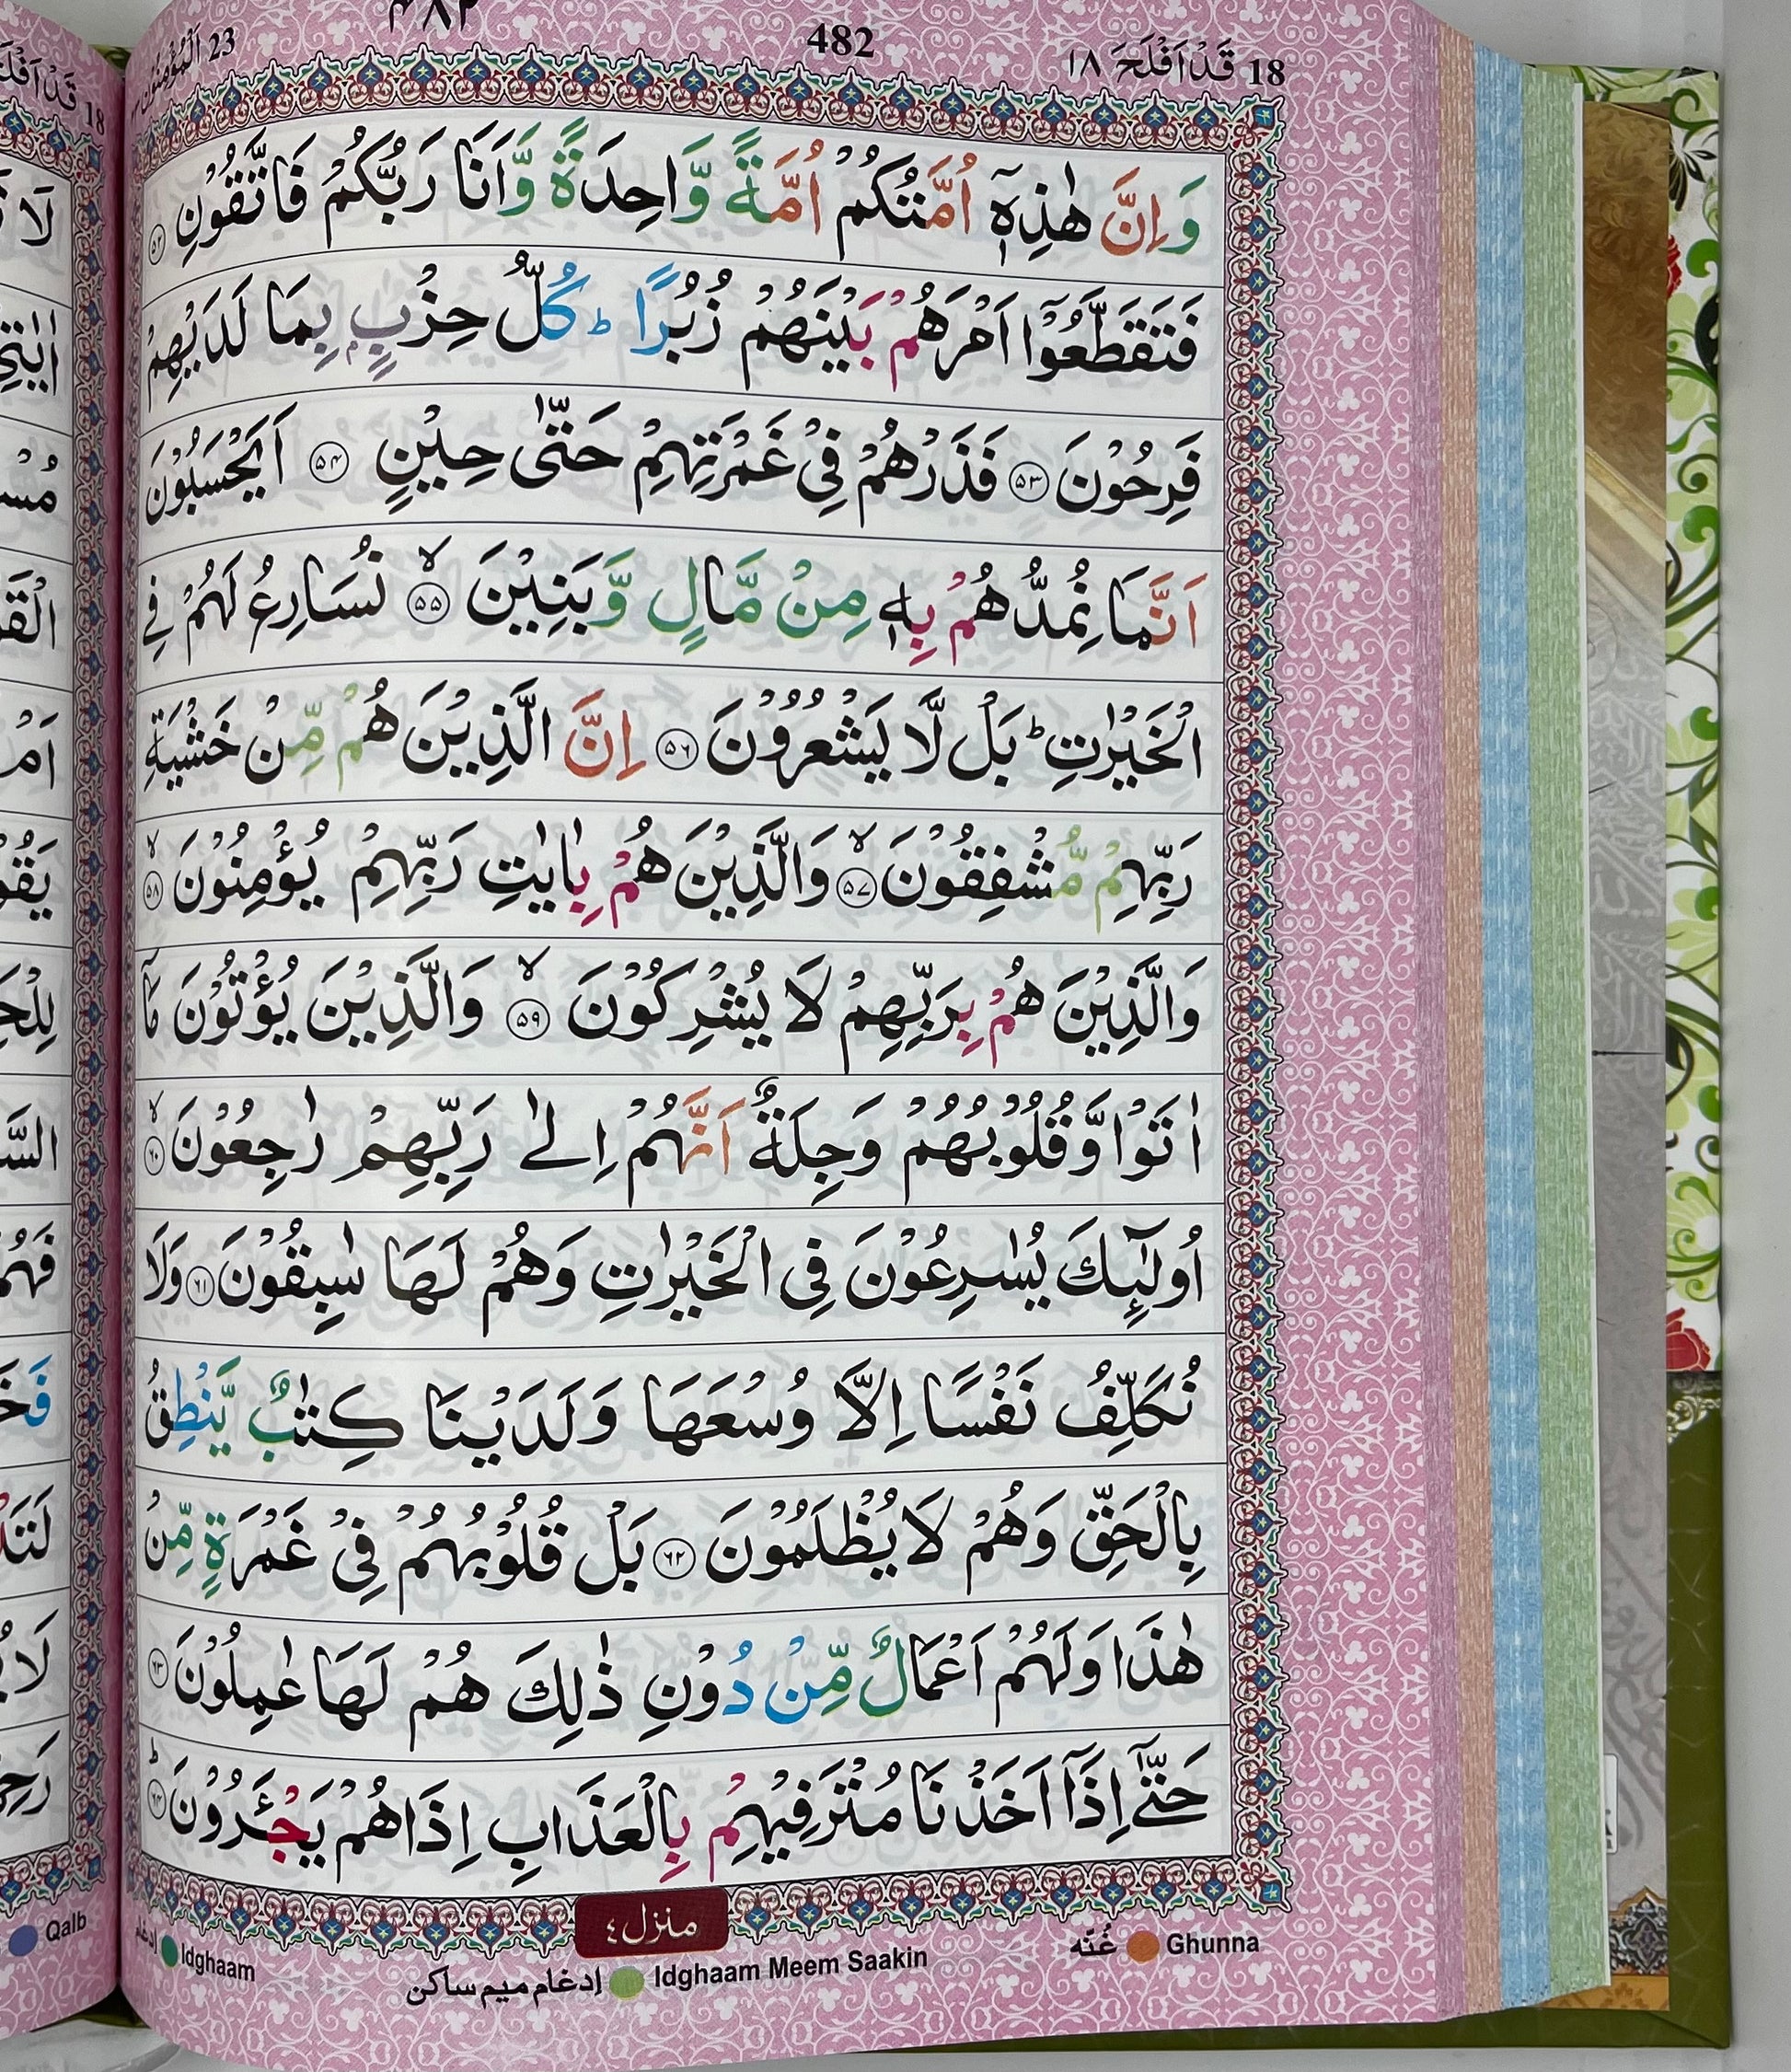 ۴۸۲
18 قَدْ اَفْلَحَ ۱۸
482
23 اَلْمُؤْمِنُوْن
وَاِنَّ هٰذِهٖۤ اُمَّتُكُمْ اُمَّةً وَّاحِدَةً وَّاَنَا رَبُّكُمْ فَاتَّقُوْنِ ۵۲
فَتَقَطَّعُوْۤا اَمْرَهُمْ بَيْنَهُمْ زُبُرًا ؕ كُلُّ حِزْبٍۭ بِمَا لَدَيْهِمْ
فَرِحُوْنَ ۵۳ فَذَرْهُمْ فِيْ غَمْرَتِهِمْ حَتّٰى حِيْنٍ ۵۴ اَيَحْسَبُوْنَ
اَنَّمَا نُمِدُّهُمْ بِهٖ مِنْ مَّالٍ وَّبَنِيْنَ ۙ ۵۵ نُسَارِعُ لَهُمْ فِي
الْخَيْرٰتِ ؕ بَلْ لَّا يَشْعُرُوْنَ ۵۶ اِنَّ الَّذِيْنَ هُمْ مِّنْ خَشْيَةِ
رَبِّهِمْ مُّشْفِقُوْنَ ۙ ۵۷ وَالَّذِيْنَ هُمْ بِاٰيٰتِ رَبِّهِمْ يُؤْمِنُوْنَ ۙ ۵۸
وَالَّذِيْنَ هُمْ بِرَبِّهِمْ لَا يُشْرِكُوْنَ ۙ ۵۹ وَالَّذِيْنَ يُؤْتُوْنَ مَاۤ
اٰتَوْا وَّقُلُوْبُهُمْ وَجِلَةٌ اَنَّهُمْ اِلٰى رَبِّهِمْ رٰجِعُوْنَ ۙ ۶۰
اُولٰٓئِكَ يُسٰرِعُوْنَ فِى الْخَيْرٰتِ وَهُمْ لَهَا سٰبِقُوْنَ ۶۱ وَلَا
نُكَلِّفُ نَفْسًا اِلَّا وُسْعَهَا وَلَدَيْنَا كِتٰبٌ يَّنْطِقُ
بِالْحَقِّ وَهُمْ لَا يُظْلَمُوْنَ ۶۲ بَلْ قُلُوْبُهُمْ فِيْ غَمْرَةٍ مِّنْ
هٰذَا وَلَهُمْ اَعْمَالٌ مِّنْ دُوْنِ ذٰلِكَ هُمْ لَهَا عٰمِلُوْنَ ۶۳
حَتّٰۤى اِذَاۤ اَخَذْنَا مُتْرَفِيْهِمْ بِالْعَذَابِ اِذَا هُمْ يَجْـَٔرُوْنَ ؕ ۶۴
منزل ۴
غُنّه Ghunna
إدغام ميم ساكن Idghaam Meem Saakin
إدغام Idghaam
Qalb
18 قَدْ اَفْلَحَ